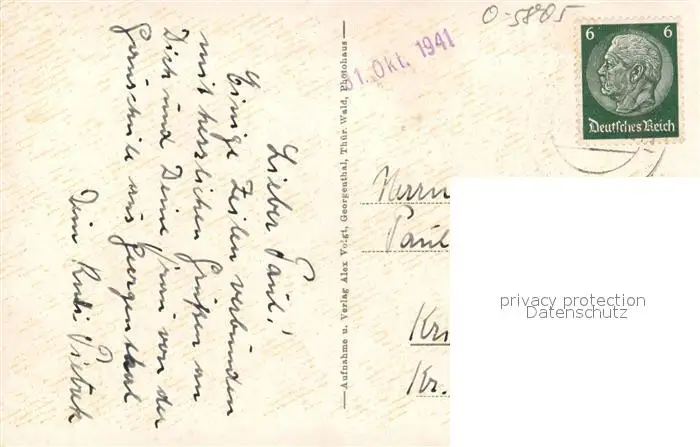 O-5805
31. Okt. 1941
6 6
Deutsches Reich
Lieber Paul!
Einige Zeilen verbunden
mit herzlichen Grüßen an
Dich und Deine Frau von der
aus Georgenthal
Dein Rudi
Aufnahme u. Verlag Alex Voigt, Georgenthal, Thür. Wald, Photohaus
Herrn
Paul
Kri
Kr.
privacy protection
Datenschutz